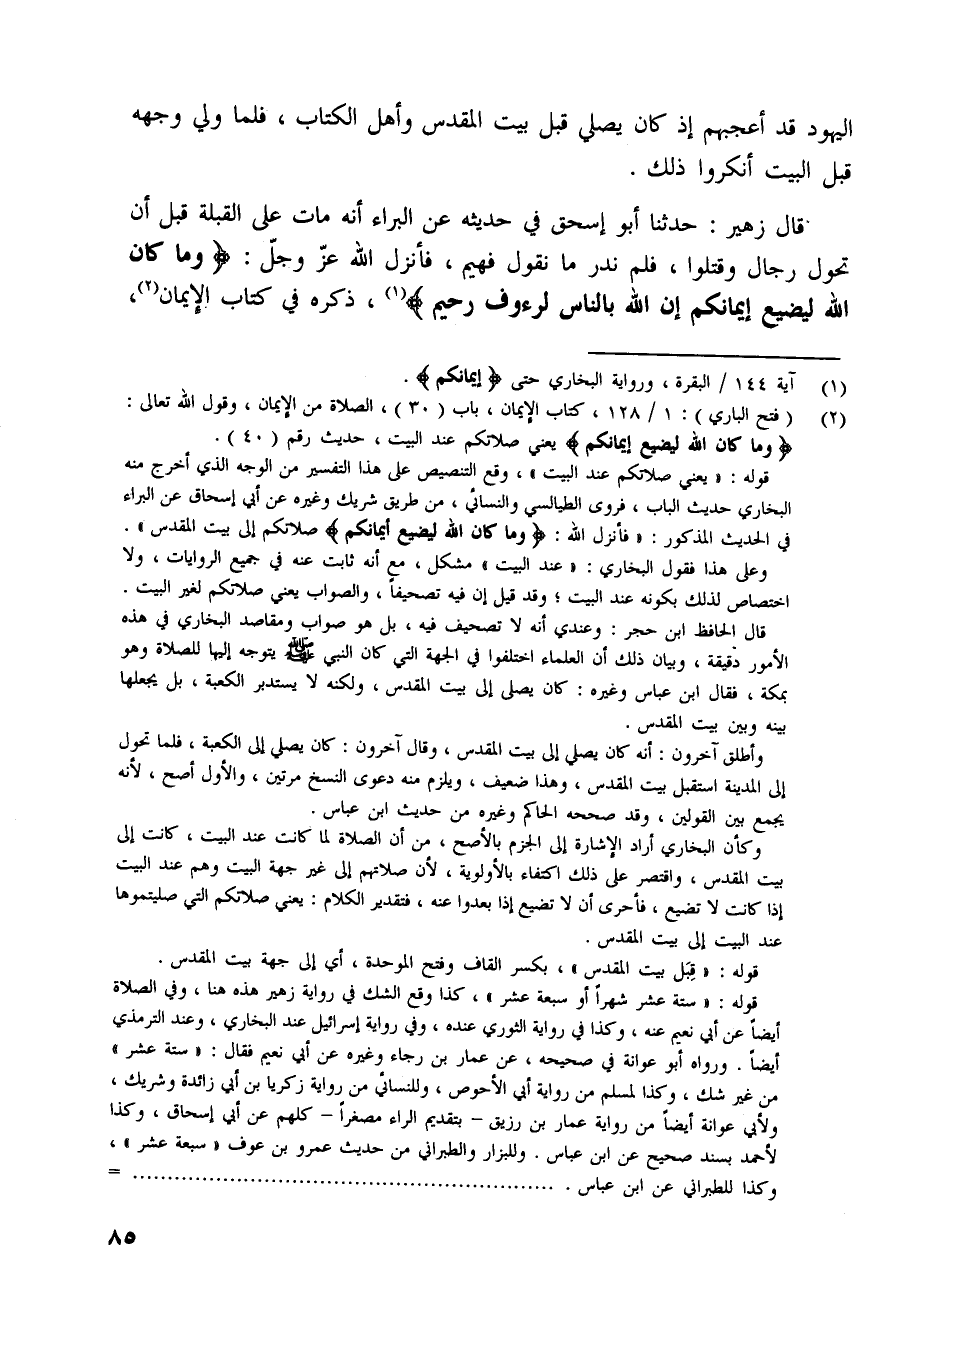 اليهود قد أعجبهم إذ كان يصلي قبل بيت المقدس وأهل الكتاب ، فلما ولي وجهه
قبل البيت أنكروا ذلك .
قال زهير : حدثنا أبو إسحق في حديثه عن البراء أنه مات على القبلة قبل أن
تحول رجال وقتلوا ، فلم ندر ما نقول فيهم ، فأنزل الله عزّ وجلّ : ﴿ وما كان
الله ليضيع إيمانكم إن الله بالناس لرءوف رحيم ﴾(١) ، ذكره في كتاب الإيمان(٢)،
(١) آية ١٤٤ / البقرة ، ورواية البخاري حتى ﴿ إيمانكم ﴾ .
(٢) ( فتح الباري ) : ١ / ١٢٨ ، كتاب الإيمان ، باب ( ٣٠ ) ، الصلاة من الإيمان ، وقول الله تعالى :
﴿ وما كان الله ليضيع إيمانكم ﴾ يعني صلاتكم عند البيت ، حديث رقم ( ٤٠ ) .
قوله : « يعني صلاتكم عند البيت » ، وقع التنصيص على هذا التفسير من الوجه الذي أخرج منه
البخاري حديث الباب ، فروى الطيالسي والنسائي ، من طريق شريك وغيره عن أبي إسحاق عن البراء
في الحديث المذكور : « فأنزل الله : ﴿ وما كان الله ليضيع أيمانكم ﴾ صلاتكم إلى بيت المقدس » .
وعلى هذا فقول البخاري : « عند البيت » مشكل ، مع أنه ثابت عنه في جميع الروايات ، ولا
اختصاص لذلك بكونه عند البيت ؛ وقد قيل إن فيه تصحيفاً ، والصواب يعني صلاتكم لغير البيت .
قال الحافظ ابن حجر : وعندي أنه لا تصحيف فيه ، بل هو صواب ومقاصد البخاري في هذه
الأمور دقيقة ، وبيان ذلك أن العلماء اختلفوا في الجهة التي كان النبي ﷺ يتوجه إليها للصلاة وهو
بمكة ، فقال ابن عباس وغيره : كان يصلى إلى بيت المقدس ، ولكنه لا يستدبر الكعبة ، بل يجعلها
بينه وبين بيت المقدس .
وأطلق آخرون : أنه كان يصلي إلى بيت المقدس ، وقال آخرون : كان يصلي إلى الكعبة ، فلما تحول
إلى المدينة استقبل بيت المقدس ، وهذا ضعيف ، ويلزم منه دعوى النسخ مرتين ، والأول أصح ، لأنه
يجمع بين القولين ، وقد صححه الحاكم وغيره من حديث ابن عباس .
وكأن البخاري أراد الإشارة إلى الجزم بالأصح ، من أن الصلاة لما كانت عند البيت ، كانت إلى
بيت المقدس ، واقتصر على ذلك اكتفاء بالأولوية ، لأن صلاتهم إلى غير جهة البيت وهم عند البيت
إذا كانت لا تضيع ، فأحرى أن لا تضيع إذا بعدوا عنه ، فتقدير الكلام : يعني صلاتكم التي صليتموها
عند البيت إلى بيت المقدس .
قوله : « قِبَل بيت المقدس » ، بكسر القاف وفتح الموحدة ، أي إلى جهة بيت المقدس .
قوله : « ستة عشر شهراً أو سبعة عشر » ، كذا وقع الشك في رواية زهير هذه هنا ، وفي الصلاة
أيضاً عن أبي نعيم عنه ، وكذا في رواية الثوري عنده ، وفي رواية إسرائيل عند البخاري ، وعند الترمذي
أيضاً . ورواه أبو عوانة في صحيحه ، عن عمار بن رجاء وغيره عن أبي نعيم فقال : « ستة عشر »
من غير شك ، وكذا لمسلم من رواية أبي الأحوص ، وللنسائي من رواية زكريا بن أبي زائدة وشريك ،
ولأبي عوانة أيضاً من رواية عمار بن رزيق – بتقديم الراء مصغراً – كلهم عن أبي إسحاق ، وكذا
لأحمد بسند صحيح عن ابن عباس . وللبزار والطبراني من حديث عمرو بن عوف « سبعة عشر » ،
وكذا للطبراني عن ابن عباس . .......................................................... =
٨٥